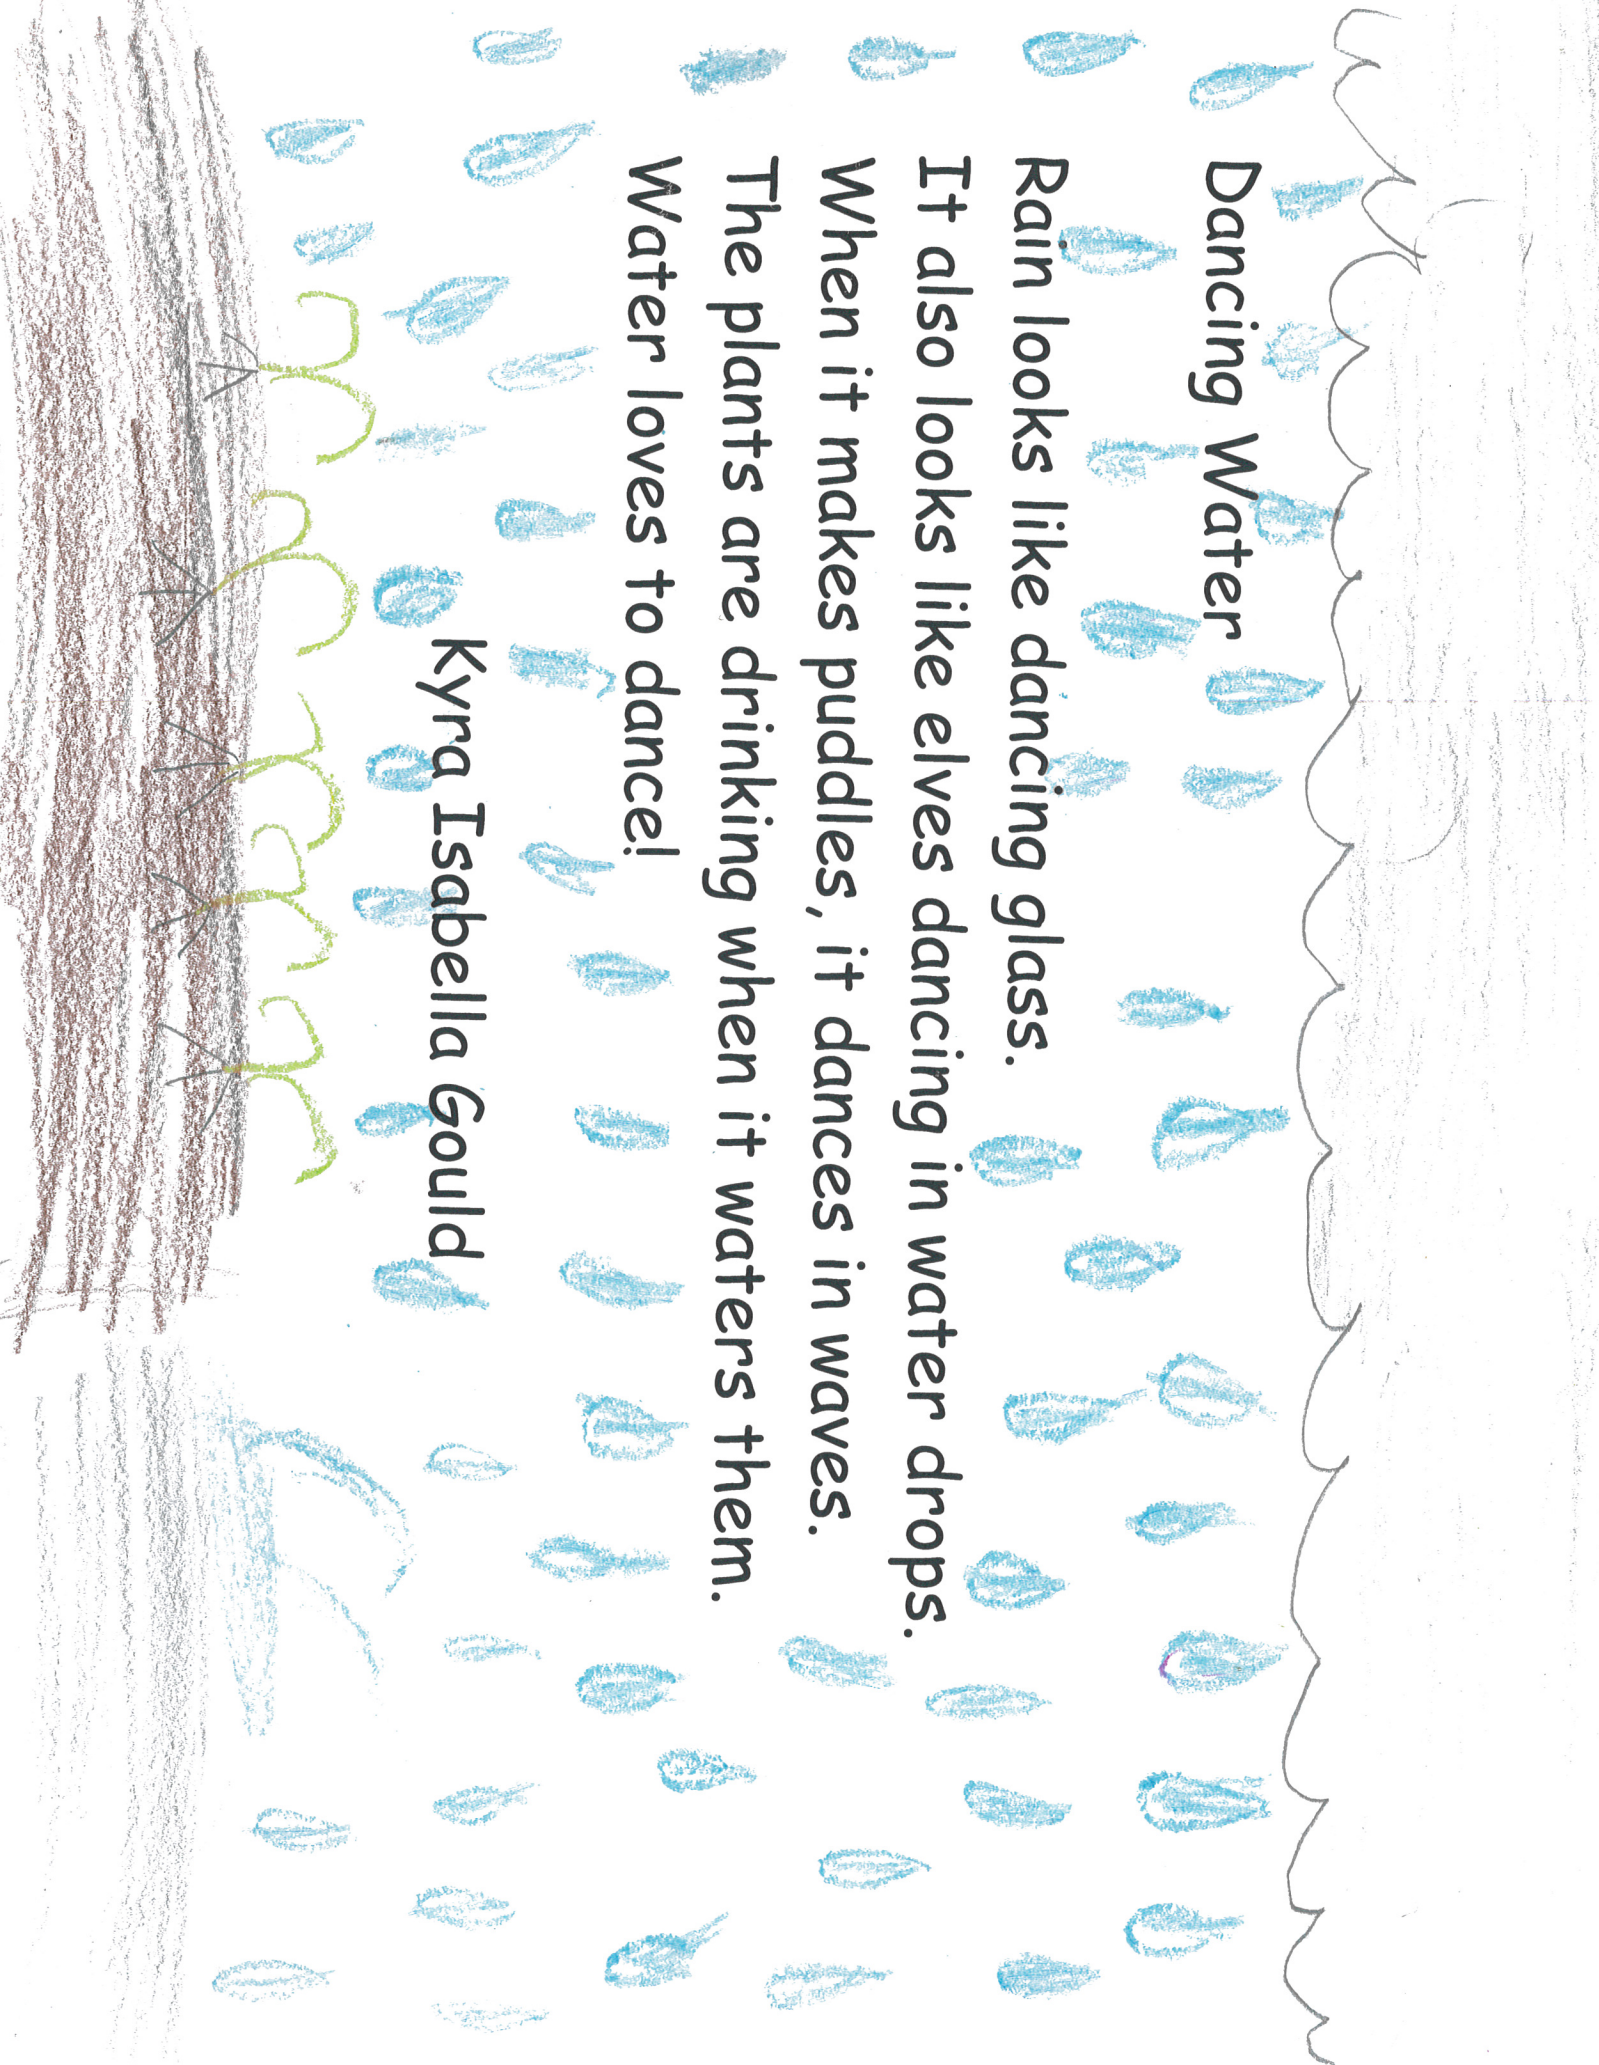 Dancing Water
Rain looks like dancing glass.
It also looks like elves dancing in water drops.
When it makes puddles, it dances in waves.
The plants are drinking when it waters them.
Water loves to dance!
Kyra Isabella Gould